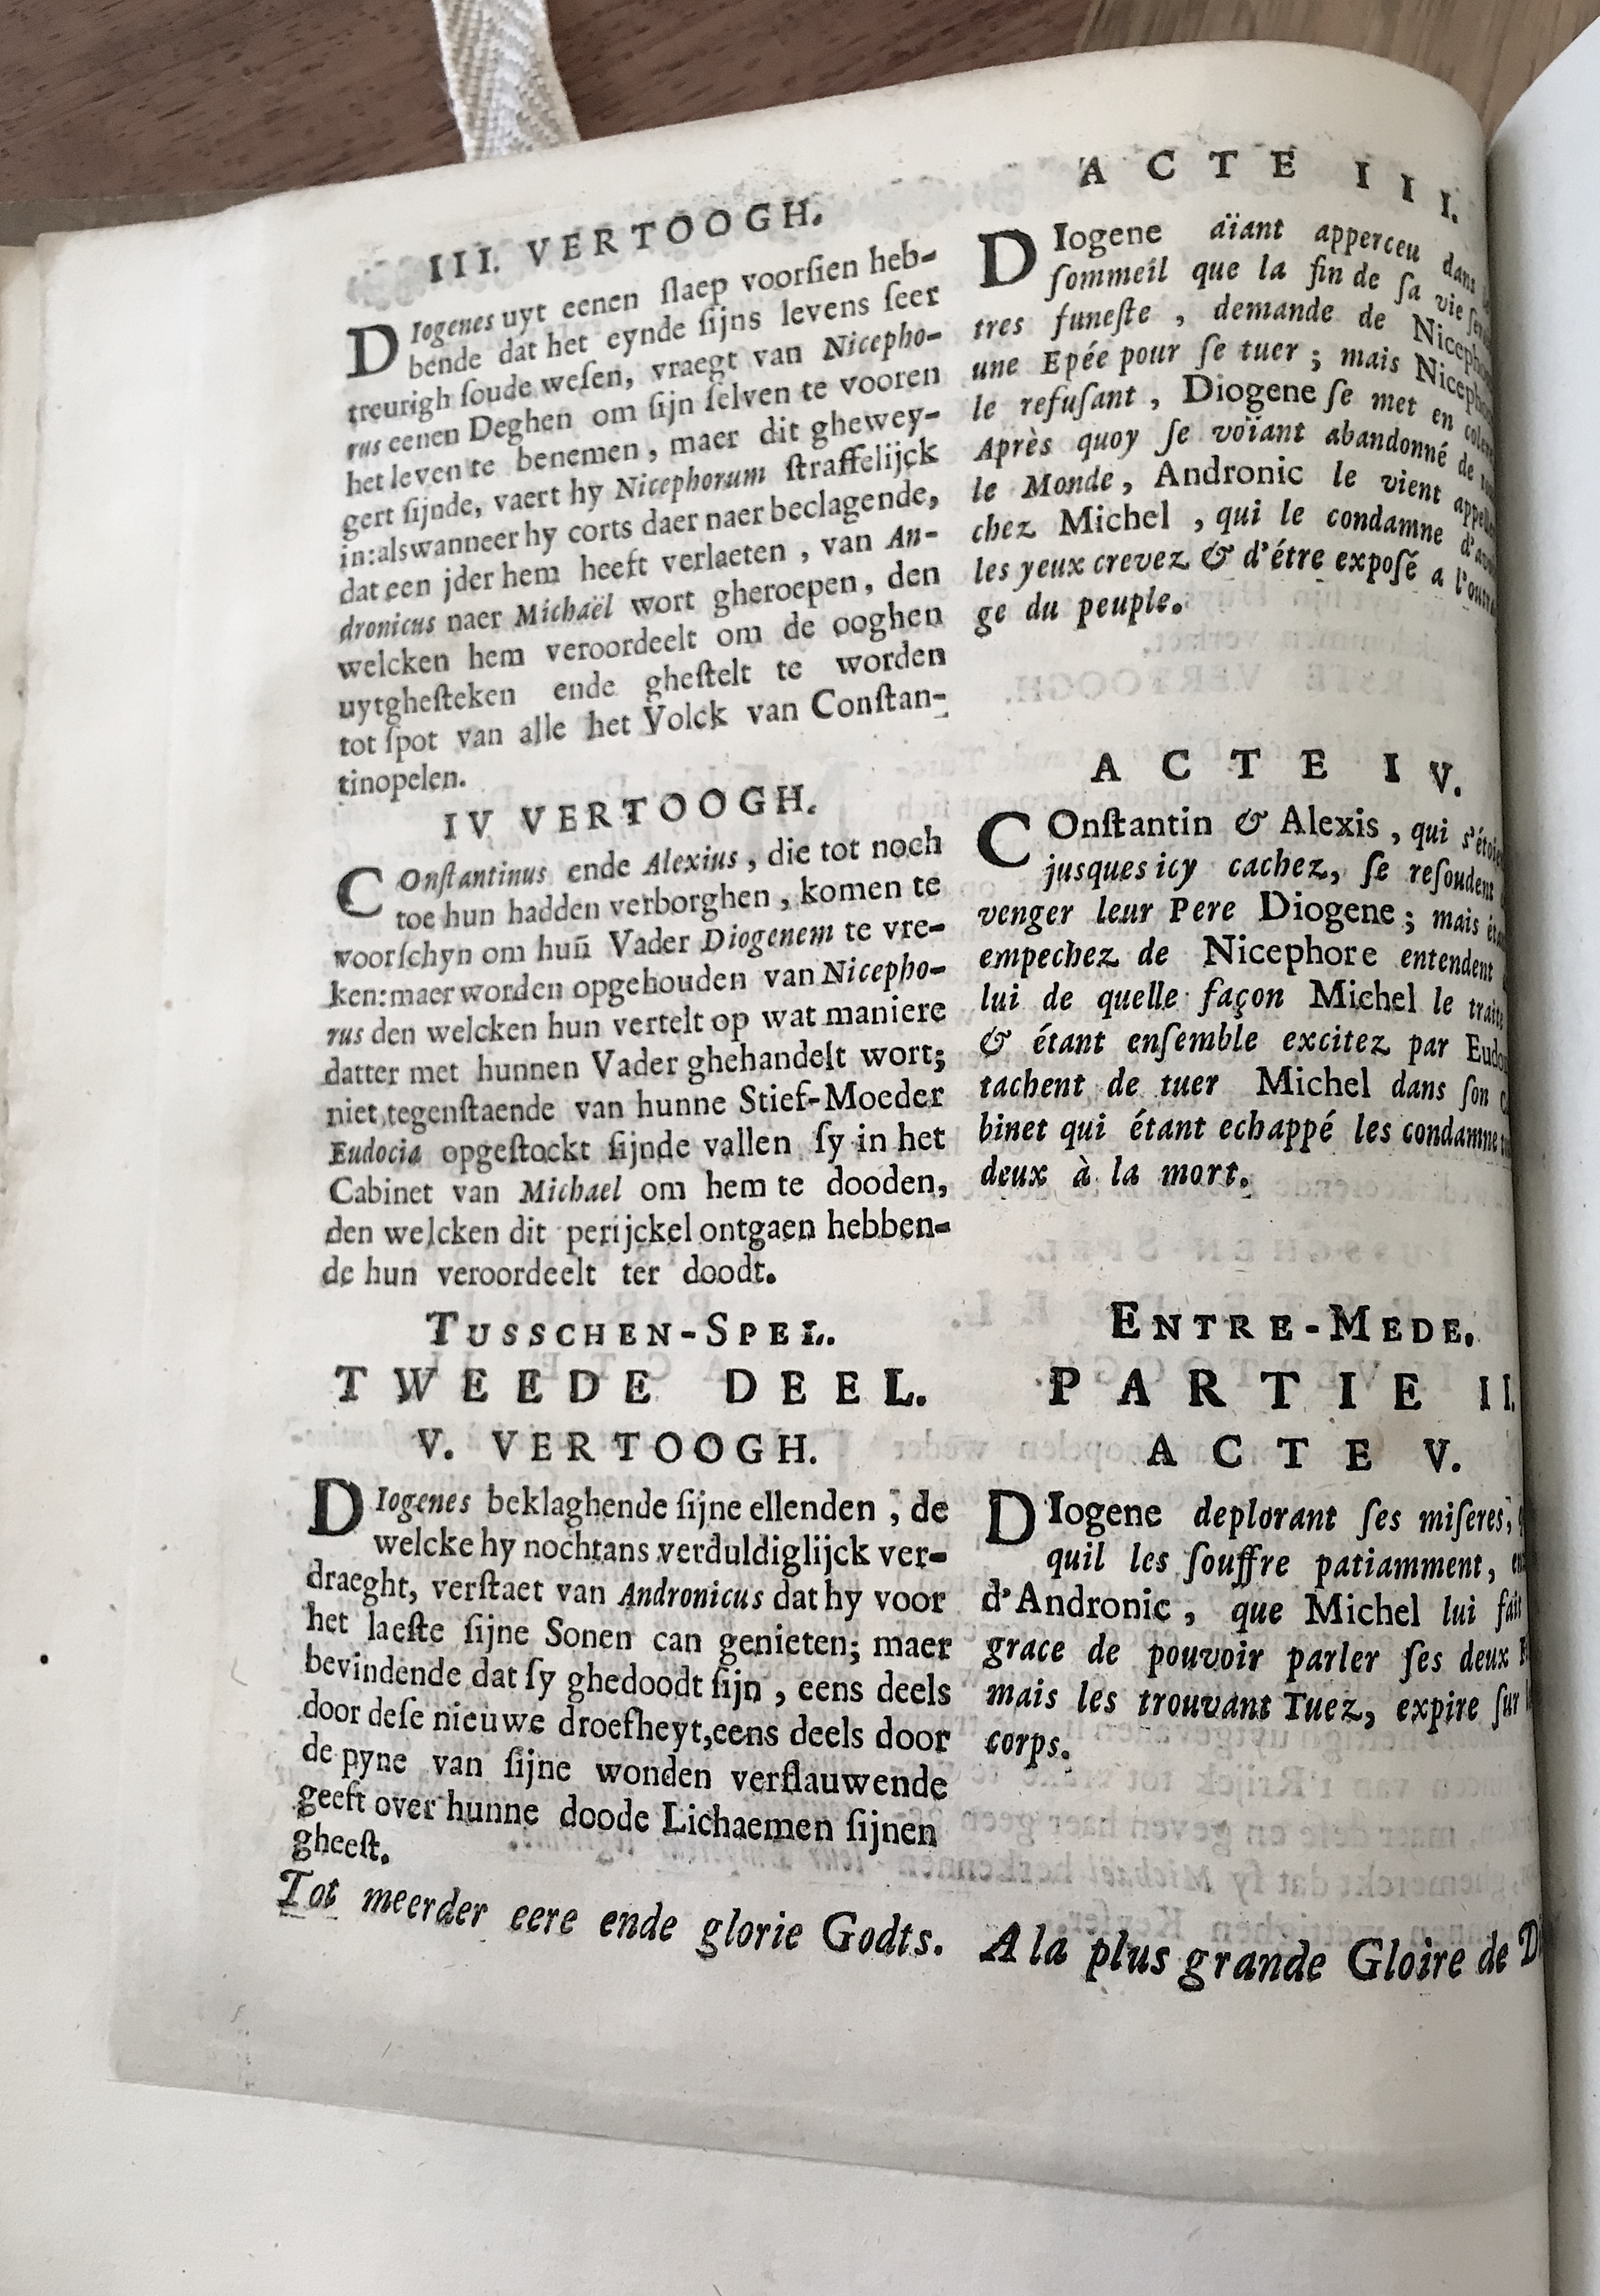 III. VERTOOGH.
DIogenes uyt eenen slaep voorsien heb-
bende dat het eynde sijns levens seer
treurigh soude wesen, vraegt van Nicepho-
rus eenen Deghen om sijn selven te vooren
het leven te benemen, maer dit ghewey-
gert sijnde, vaert hy Nicephorum straffelijck
in: alswanneer hy corts daer naer beclagende,
dat een jder hem heeft verlaeten, van An-
dronicus naer Michaël wort gheroepen, den
welcken hem veroordeelt om de ooghen
uytghesteken ende ghestelt te worden
tot spot van alle het Volck van Constan-
tinopelen.
IV VERTOOGH.
COnstantinus ende Alexius, die tot noch
toe hun hadden verborghen, komen te
voorschyn om huñ Vader Diogenem te vre-
ken: maer worden opgehouden van Nicepho-
rus den welcken hun vertelt op wat maniere
datter met hunnen Vader ghehandelt wort;
niet tegenstaende van hunne Stief-Moeder
Eudocia opgestockt sijnde vallen sy in het
Cabinet van Michael om hem te dooden,
den welcken dit perijckel ontgaen hebben-
de hun veroordeelt ter doodt.
TUSSCHEN-SPEL.
TWEEDE DEEL.
V. VERTOOGH.
DIogenes beklaghende sijne ellenden, de
welcke hy nochtans verduldiglijck ver-
draeght, verstaet van Andronicus dat hy voor
het laeste sijne Sonen can genieten; maer
bevindende dat sy ghedoodt sijn, eens deels
door dese nieuwe droefheyt, eens deels door
de pyne van sijne wonden verflauwende
geeft over hunne doode Lichaemen sijnen
gheest.
Tot meerder eere ende glorie Godts.
ACTE III.
DIogene aïant apperceu dans
sommeil que la fin de sa vie
tres funeste, demande de
une Epée pour se tuer; mais
le refusant, Diogene se met en
Après quoy se voïant abandonné de
le Monde, Andronic le vient
chez Michel, qui le condamne
les yeux crevez & d'étre exposé a
ge du peuple.
ACTE IV.
COnstantin & Alexis, qui
jusques icy cachez, se resoudent
venger leur Pere Diogene; mais
empechez de Nicephore entendent
lui de quelle façon Michel le
& étant ensemble excitez par
tachent de tuer Michel dans son
binet qui étant echappé les condamne
deux à la mort.
ENTRE-MEDE.
PARTIE II.
ACTE V.
DIogene deplorant ses miseres,
quil les souffre patiamment,
d'Andronic, que Michel lui fait
grace de pouvoir parler ses deux
mais les trouvant Tuez, expire sur
corps.
A la plus grande Gloire de